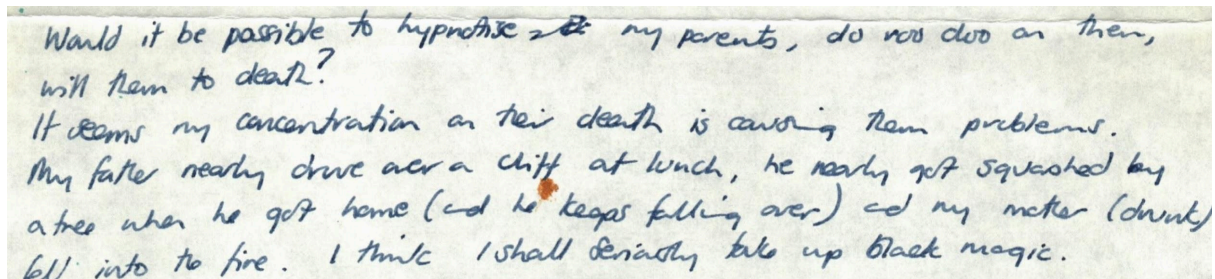 Would it be possible to hypnotise my parents, do voo doo on them,
will them to death?
It seems my concentration on their death is causing them problems.
My father nearly drove over a cliff at lunch, he nearly got squashed by
a tree when he got home (and he keeps falling over) and my mother (drunk)
fell into the fire. I think I shall seriously take up black magic.